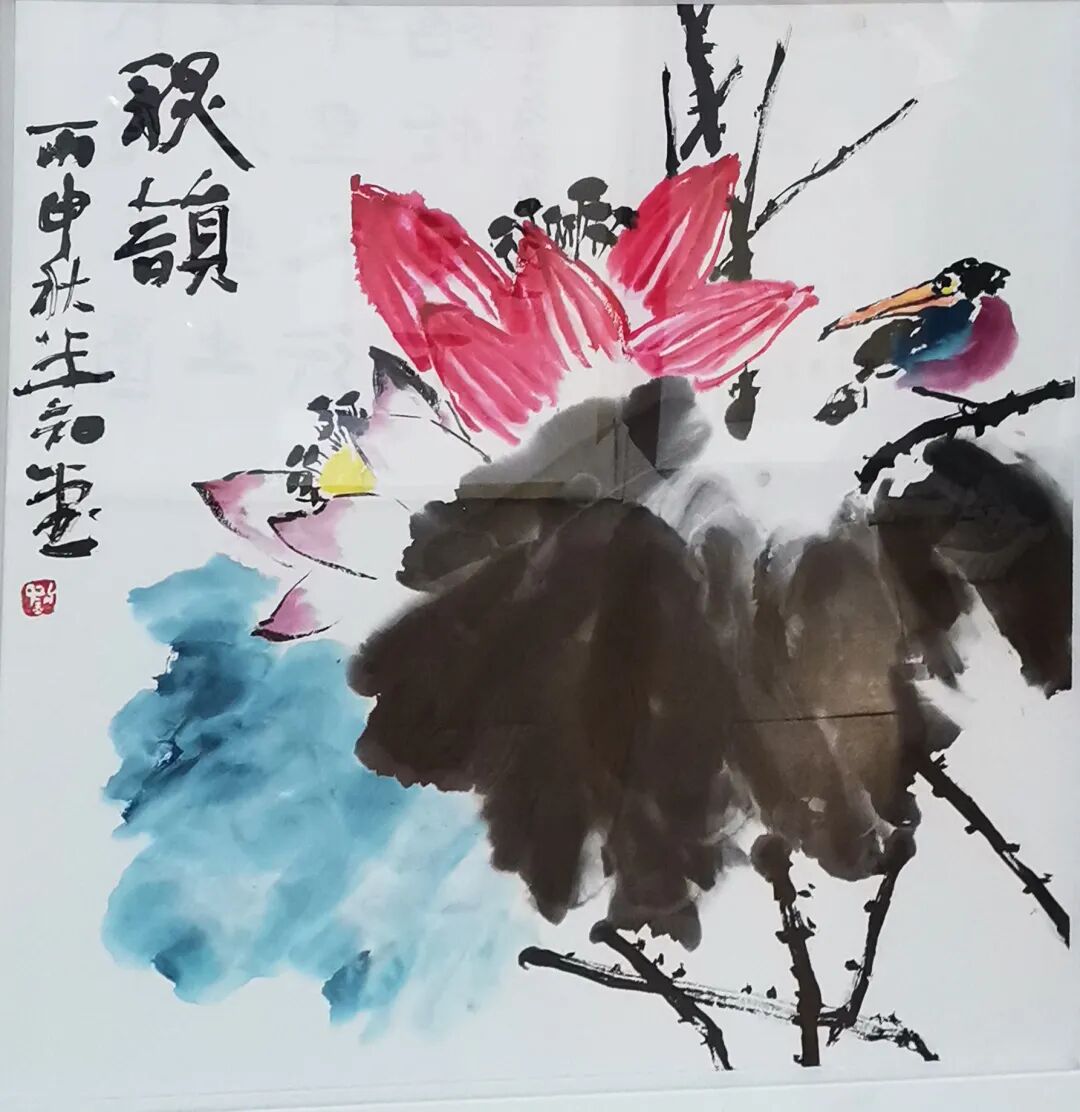 秋韻
丙申秋知畫